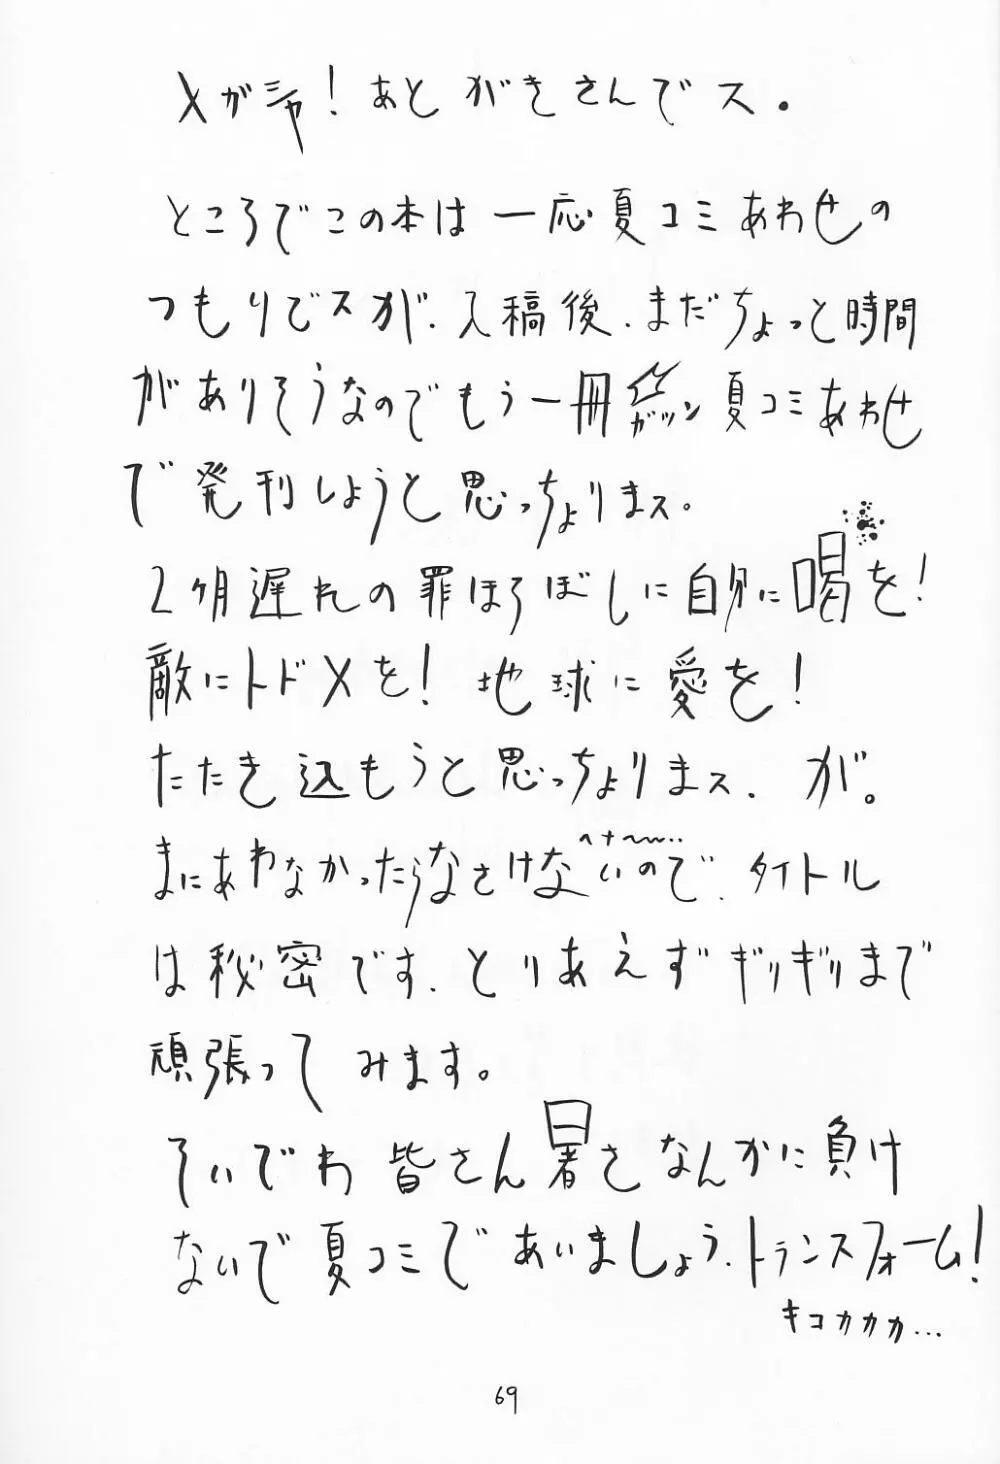 メガシャ！あとがきさんでス.
ところでこの本は一応夏コミあわせの
つもりでスが、入稿後、まだちょっと時間
がありそうなのでもう一冊ガツン夏コミあわせ
で発刊しようと思っちょりまス。
2ヶ月遅れの罪ほろぼしに自分に喝を！
敵にトドメを！地球に愛を！
たたき込もうと思っちょりまス、が。
ヘナ〜…
まにあわなかったらなさけないので、タイトル
は秘密です、とりあえずギリギリまで
頑張ってみます。
そいでわ皆さん暑さなんかに負け
ないで夏コミであいましょう、トランスフォーム！
キコカカカ…
69